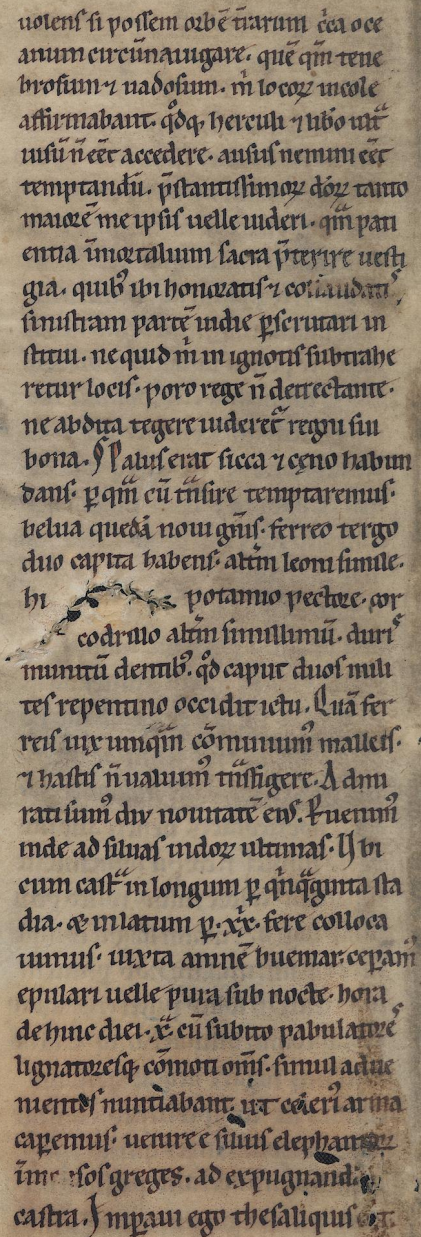 uolens si possem orbē t̄rarum c̄ca oce
anum circūnauigare. quē qm̄ tene
brosum ⁊ uadosum. m̄ locorꝝ incole
affirmabant. qd̄qꝫ herculi ⁊ libo ult̄
uisū n̄ eēt accedere. ausus nemini eēt
temptandū. p̄stantissimorꝝ dōrꝝ tanto
maiorē me ipsis uelle uideri. qm̄ pati
entia īmortalium sacra p̄terire uesti
gia. quibꝫ ibi honoratis ⁊
sinistram partē indie ꝑscrutari in
stitui. ne quid m̄ in ignotis subtrahe
retur locis. poro rege n̄ detrectante.
ne abdita tegere uideret᷑ regni sui
bona. ¶ Palus erat sicca ⁊ cęno habun
dans. ꝑ qm̄ cū tn̄sire temptaremus.
belua quedā noui gn̄is. ferreo tergo
duo capita habens. altm̄ leoni simile.
hi potamio pectore. cor
codrillo altm̄ simillimū. duri᷑
munitū dentibꝫ. qd̄ caput duos mili
tes repentino occidit ictu. Quā fer
reis uix umqm̄ cōminuimꝰ malleis.
⁊ hastis n̄ ualuimꝰ tn̄sfigere. Admi
rati sumꝰ diu nouitatē eiꝰ. Peruenimꝰ
inde ad siluas indorꝝ ultimas. Vbi
cum castᷓ in longum ꝑ qͥnqᷓginta sta
dia. & in latum ꝑ .xx. fere colloca
uimus. iuxta amnē buemar. ceꝑamꝰ
epulari uelle pura sub nocte. hora
dehinc diei .xᷓ. cū subito pabulatorē᷑
lignatoresqꝫ cōmoti oms̄. simul adue
nientes nuntiabant. ut celeriꝰ arma
caperemus. uenire e siluis elephantorꝝ
greges. ad expugnand
castra. Imperaui ego thesaliquis